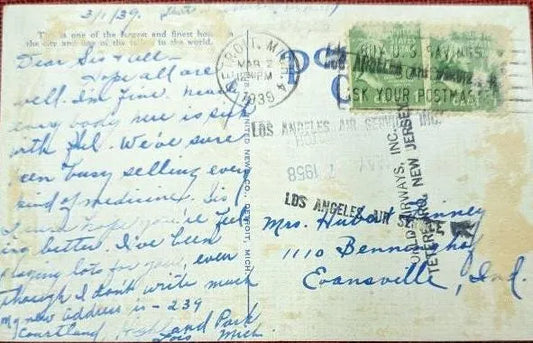 3/1/39.
This is one of the largest and finest hotels in
the city and one of the tallest in the world.
Dear Sis & all—
Hope all are
well. I'm fine. Near
every body here is sick
with flu. We've sure
been busy selling every
kind of medicine. Sis I
sure hope you're feel
ing better. I've been
praying lots for you, even
though I don't write much
my new address is - 239
Courtland, Highland Park
Lois Mich.
UNITED NEWS CO., DETROIT, MICH.
DETROIT, MICH.
MAR 2
12 PM
1939
BUY U.S. SAVINGS
ASK YOUR POSTMASTER
LOS ANGELES AIR SERVICE, INC.
MAY 7 1958
LOS ANGELES AIR SERVICE
WORLD AIRWAYS, INC.
TETERBORO, NEW JERSEY
Mrs. Hubert
1110 Bennighof
Evansville, Ind.